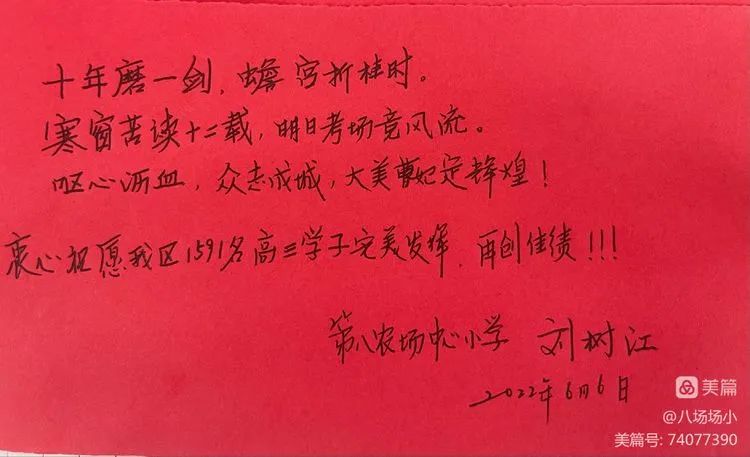 十年磨一剑，蟾宫折桂时。
寒窗苦读十二载，明日考场竞风流。
呕心沥血，众志成城，大美曹妃定辉煌！
衷心祝愿我区1591名高三学子完美发挥，再创佳绩！！！
第八农场中心小学 刘树江
2022年6月6日
美篇
@八场场小
美篇号: 74077390